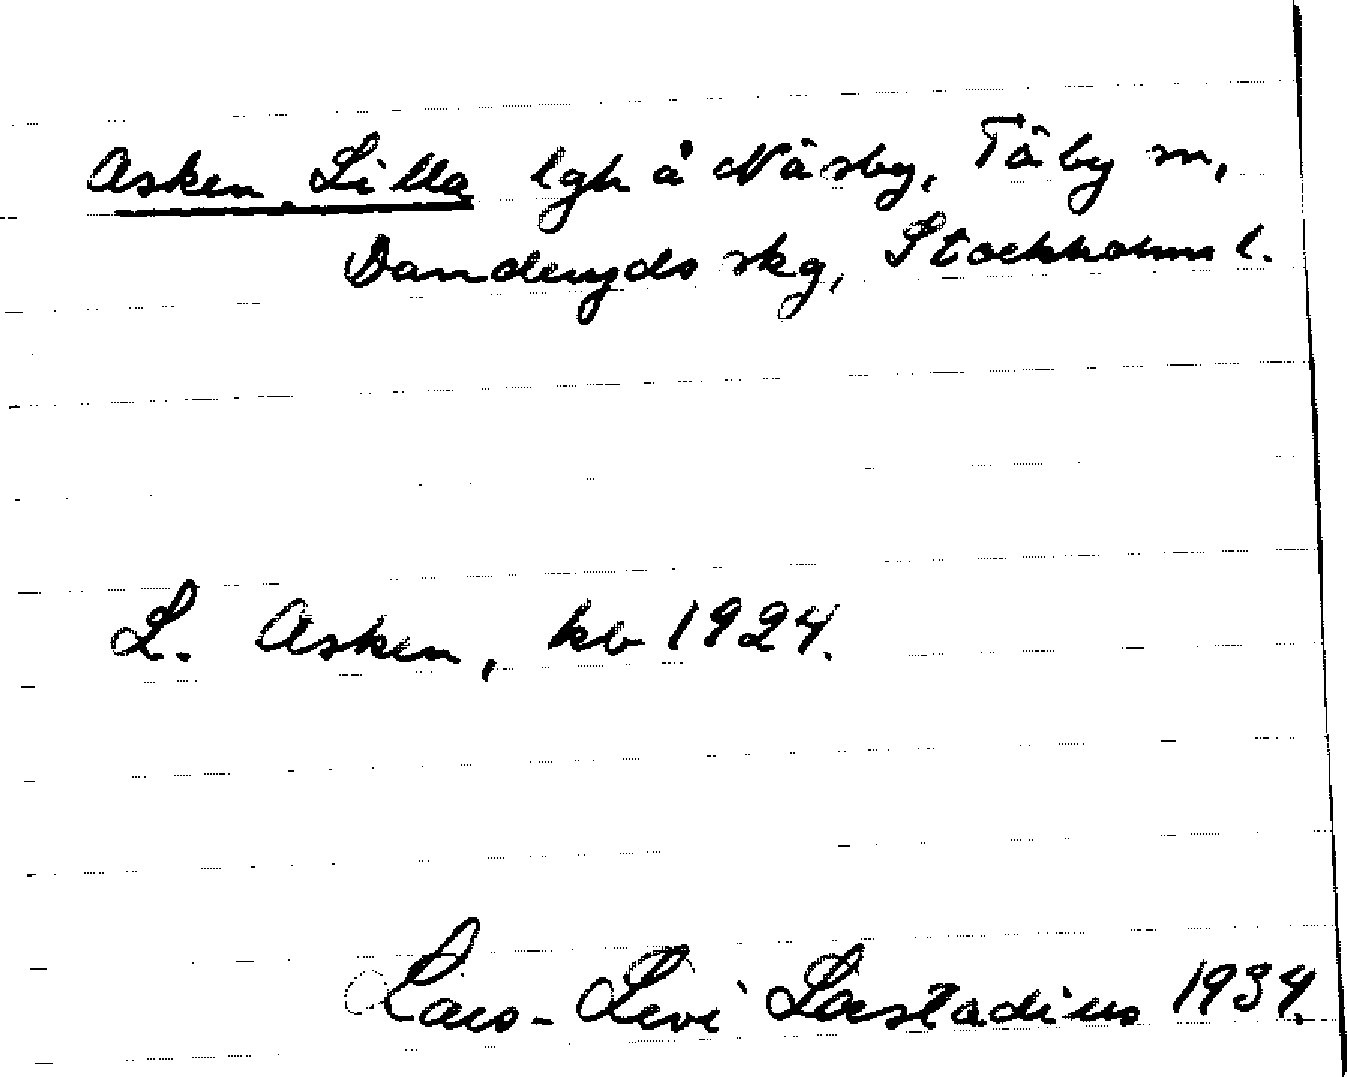 Asken Lilla lgh å Näsby, Täby sn,
Danderyds skg, Stockholms l.
L. Asken, kb 1924.
Lars-Levi Læstadius 1934.